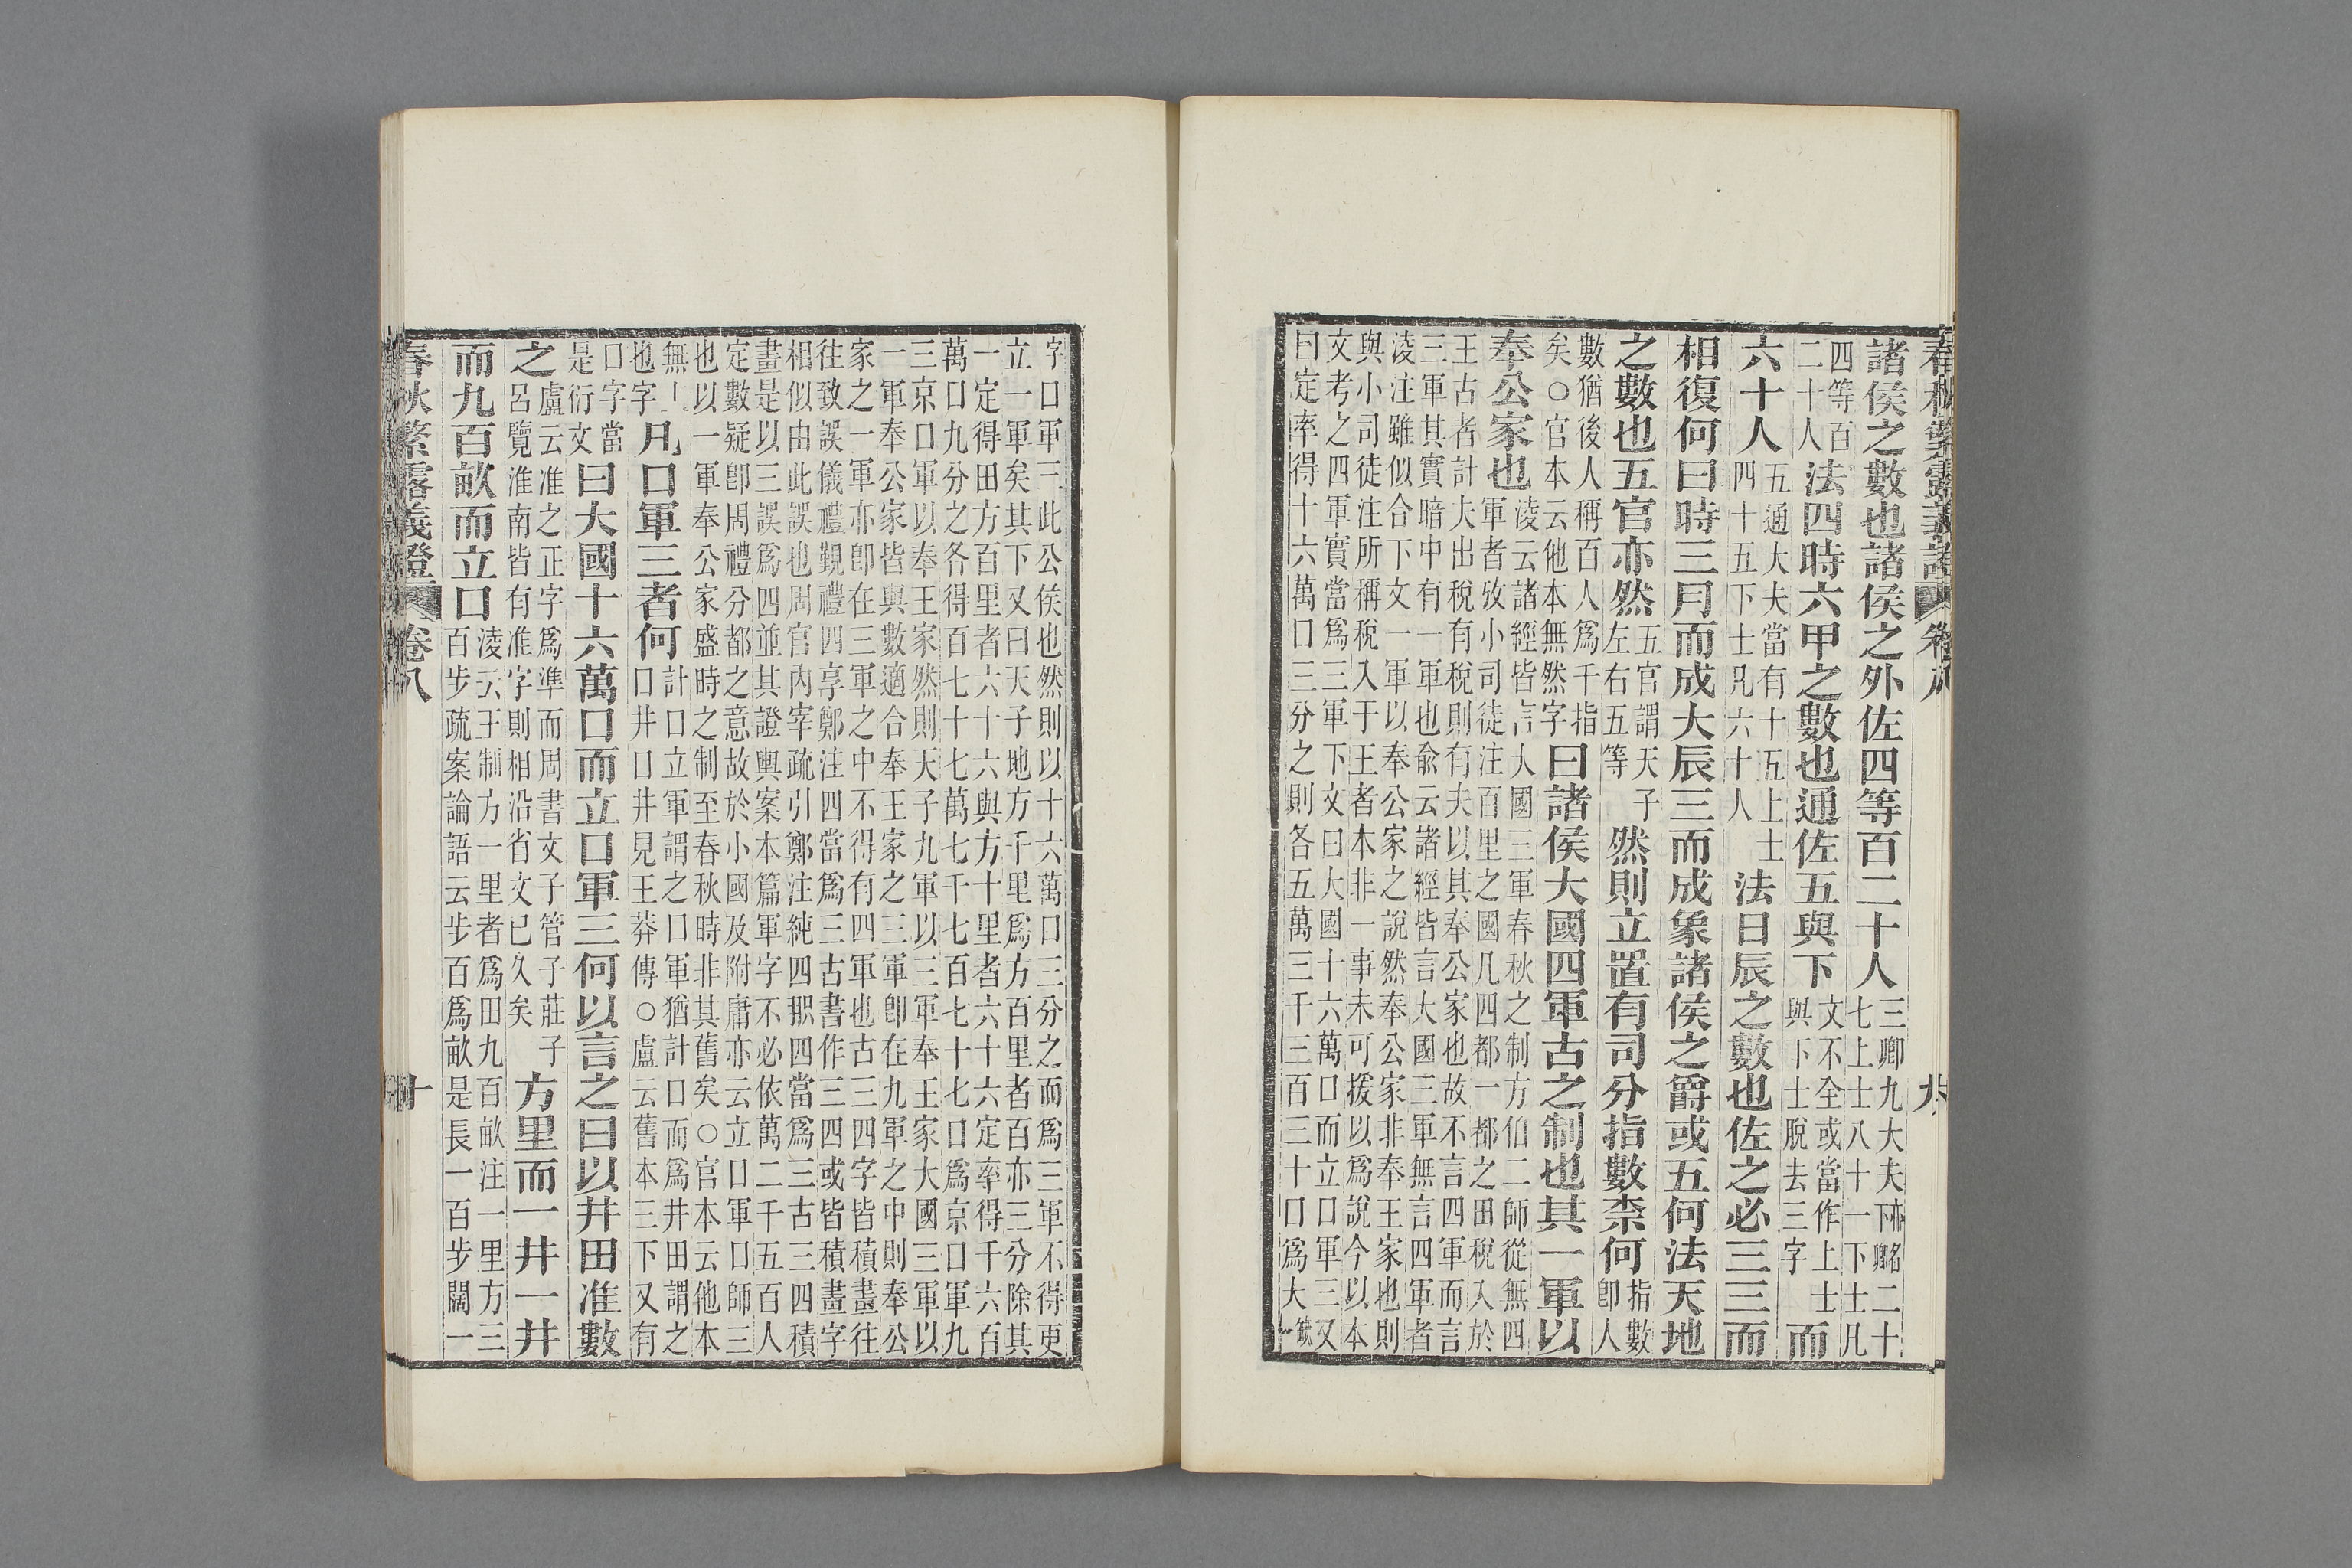 春秋繁露義證 卷八 九
諸侯之數也諸侯之外佐四等百二十人
三卿九大夫亦名下卿二十
七上士八十一下士凡
四等百
二十人
法四時六甲之數也通佐五與下
文不全或當作上士
與下士脫去三字
而
六十人
五通大夫當有十五上士
四十五下士凡六十人
法日辰之數也佐之必三三而
相復何曰時三月而成大辰三而成象諸侯之爵或五何法天地
之數也五官亦然
五官謂天子
左右五等
然則立置有司分指數柰何
指數
卽人
數猶後人稱百人爲千指
矣○官本云他本無然字
曰諸侯大國四軍古之制也其一軍以
奉公家也
淩云諸經皆言大國三軍春秋之制方伯二師從無四
軍者攷小司徒注百里之國凡四都一都之田稅入於
王古者計夫出稅有稅則有夫以其奉公家也故不言四軍而言
三軍其實暗中有一軍也兪云諸經皆言大國三軍無言四軍者
淩注雖似合下文一軍以奉公家之說然奉公家非奉王家也則
與小司徒注所稱稅入于王者本非一事未可援以爲說今以本
文考之四軍實當爲三軍下文曰大國十六萬口而立口軍三又
曰定率得十六萬口三分之則各五萬三千三百三十口爲大
字口軍三此公侯也然則以十六萬口三分之而爲三軍不得更
立一軍矣其下又曰天子地方千里爲方百里者百亦三分除其
一定得田方百里者六十六與方十里者六十六定率得千六百
萬口九分之各得百七十七萬七千七百七十七口爲京口軍九
三京口軍以奉王家然則天子九軍以三軍奉王家大國三軍以
一軍奉公家皆與數適合奉王家之三軍卽在九軍之中則奉公
家之一軍亦卽在三軍之中不得有四軍也古三四字皆積畫往
往致誤儀禮覲禮四享鄭注四當爲三古書作三四或皆積畫字
相似由此誤也周官內宰疏引鄭注純四 四當爲三古三四積
畫是以三誤爲四並其證輿案本篇軍字不必依萬二千五百人
定數疑卽周禮分都之意故於小國及附庸亦云立口軍口師三
也以一軍奉公家盛時之制至春秋時非其舊矣○官本云他本
無上
也字
凡口軍三者何
計口立軍謂之口軍猶計口而爲井田謂之
口井口井見王莽傳○盧云舊本三下又有
口字當
是衍文
曰大國十六萬口而立口軍三何以言之曰以井田准數
之
盧云准之正字爲準而周書文子管子莊子
呂覽淮南皆有准字則相沿省文已久矣
方里而一井一井
而九百畝而立口
淩云王制方一里者爲田九百畝注一里方三
百步疏案論語云步百爲畝是長一百步闊一
春秋繁露義證 卷八 十